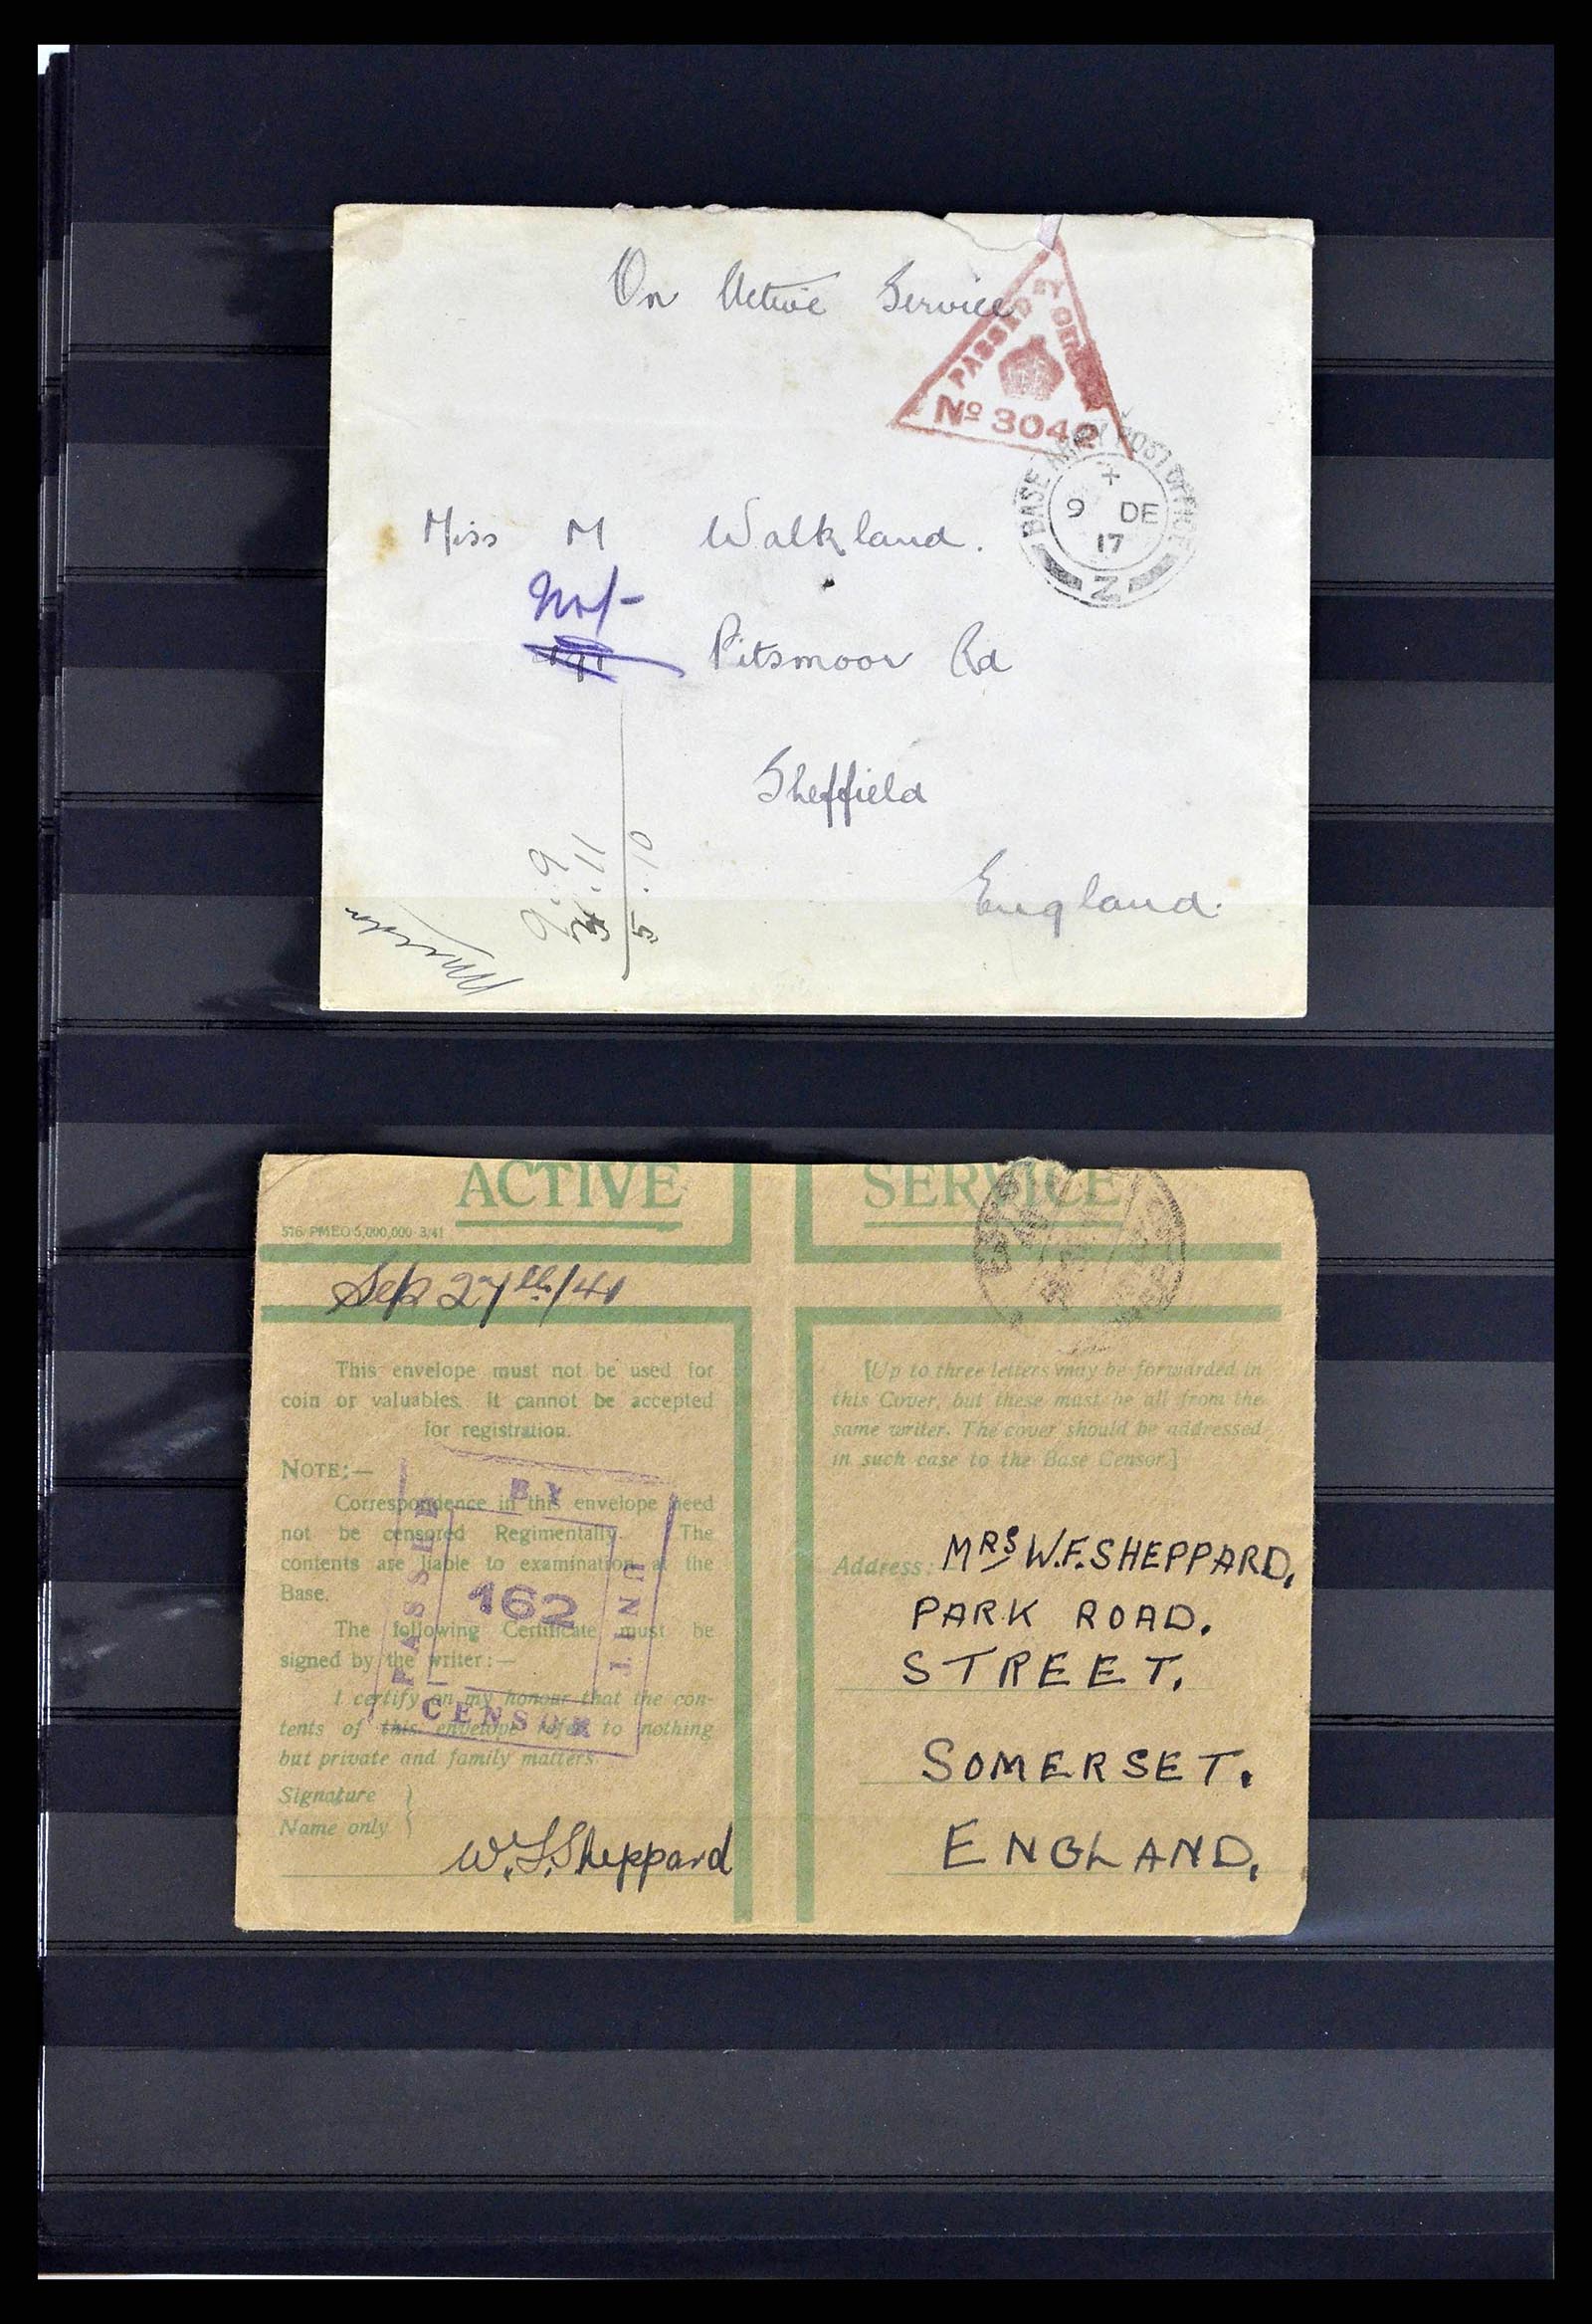 On Active Service
PASSED BY
No 3042
BASE ARMY POST OFFICE
9 DE
17
Z
Miss M Walkland.
Not
Pitsmoor Rd
Sheffield
England.
2.6
11
5.10
ACTIVE SERVICE
516/PMEO 5,000,000 3/41
Sep 27th/41
This envelope must not be used for
coin or valuables. It cannot be accepted
for registration.
NOTE:—
Correspondence in this envelope need
not be censored Regimentally. The
contents are liable to examination at the
Base.
The following Certificate must be
signed by the writer:—
I certify on my honour that the con-
tents of this envelope refer to nothing
but private and family matters.
Signature }
Name only }
W.F.Sheppard
PASSED BY UNIT CENSOR
162
[Up to three letters may be forwarded in
this Cover, but these must be all from the
same writer. The cover should be addressed
in such case to the Base Censor.]
Address: MRS W.F.SHEPPARD,
PARK ROAD.
STREET.
SOMERSET.
ENGLAND.